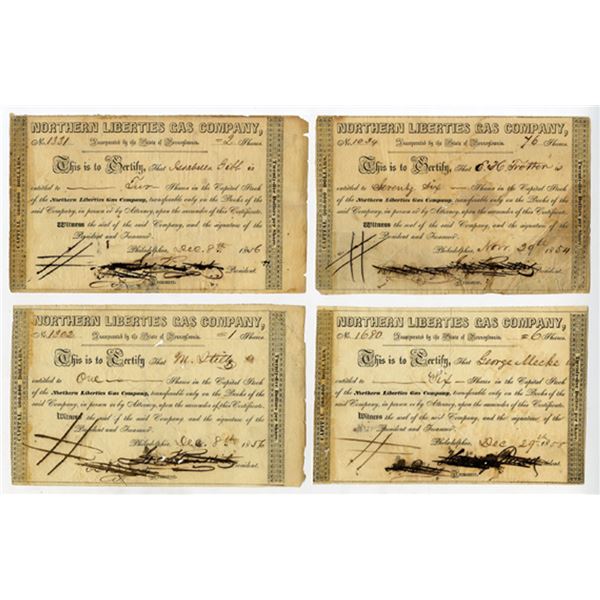 NORTHERN LIBERTIES GAS COMPANY,
No. 1331 Incorporated by the State of Pennsylvania. =2 Shares.
This is to Certify, That Isabella Gibb is
entitled to Shares in the Capital Stock
of the Northern Liberties Gas Company, transferable only on the Books of the
said Company, in person or by Attorney, upon the surrender of this Certificate.
Witness the seal of the said Company, and the signature of the
President and Treasurer.
Philadelphia, Dec. 8th 1856
President.
Treasurer.
NORTHERN LIBERTIES GAS COMPANY,
No. 1034 Incorporated by the State of Pennsylvania. 76 Shares.
This is to Certify, That Trotter is
entitled to Seventy Six Shares in the Capital Stock
of the Northern Liberties Gas Company, transferable only on the Books of the
said Company, in person or by Attorney, upon the surrender of this Certificate.
Witness the seal of the said Company, and the signature of the
President and Treasurer.
Philadelphia, Novr. 29th 1854
President.
Treasurer.
NORTHERN LIBERTIES GAS COMPANY,
No. 1302 Incorporated by the State of Pennsylvania. =1 Shares.
This is to Certify, That is
entitled to One Shares in the Capital Stock
of the Northern Liberties Gas Company, transferable only on the Books of the
said Company, in person or by Attorney, upon the surrender of this Certificate.
Witness the seal of the said Company, and the signature of the
President and Treasurer.
Philadelphia, Dec. 8th 1856
President.
Treasurer.
NORTHERN LIBERTIES GAS COMPANY,
No. 1680 Incorporated by the State of Pennsylvania. =6 Shares.
This is to Certify, That George Mecke is
entitled to Six Shares in the Capital Stock
of the Northern Liberties Gas Company, transferable only on the Books of the
said Company, in person or by Attorney, upon the surrender of this Certificate.
Witness the seal of the said Company, and the signature of the
President and Treasurer.
Philadelphia, Dec 29th 1858
President.
Treasurer.